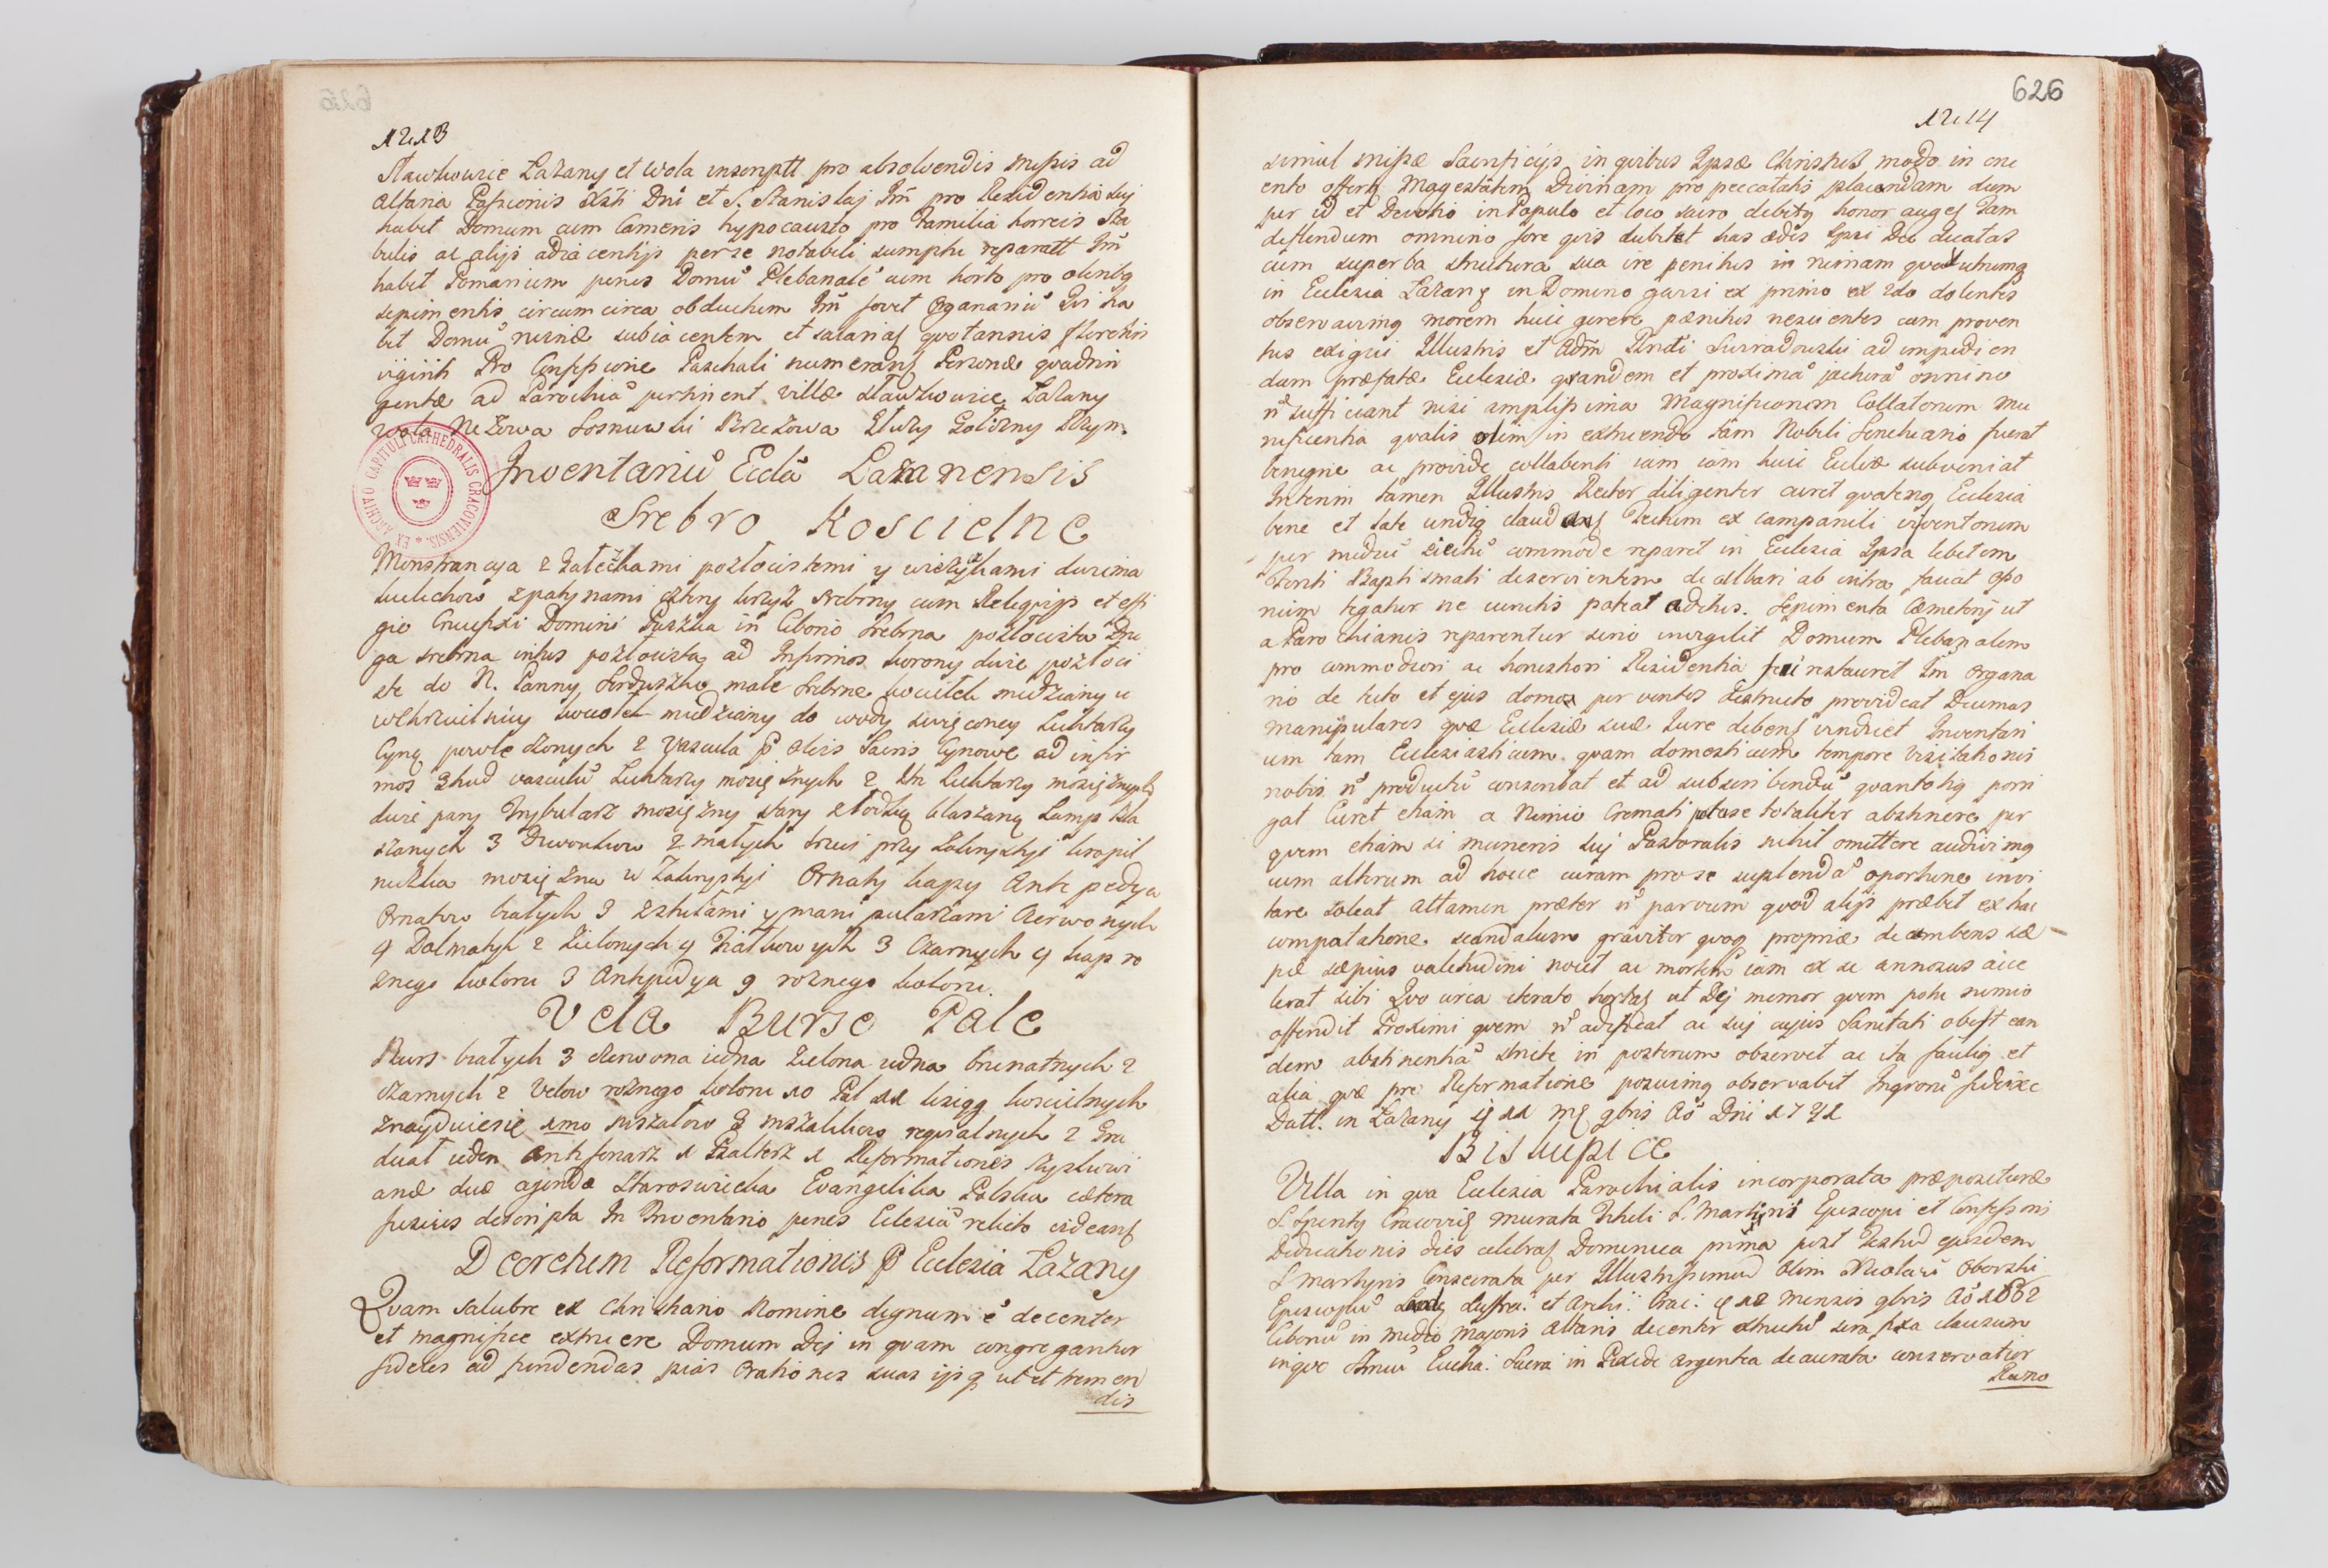 1213
Sławkowice Łazany et Wola inscriptt pro absolvendis missis ad
Altaria Passionis Xsti Dni et S. Stanislaj Im pro Residentia suj
habet Domum cum Cameris hypocausto pro Familia horreis Sta
bulis ac alijs adiacentijs per se notabili sumptu reparatt Im
habet Pomarium penes Domu Plebanale cum horto pro oleribg
sepimentis circum circa obductum Im fovet Organariu Qvi ha
bet Domu ruinæ subiacentem et salariat qvotannis florenis
viginti Pro Confessione Paschali numerant Personæ qvadrin
gentæ ad Parochia pertinent villæ Sławkowice Łazany
Wola Niezowa Sosnuwki Brzezowa
EX ARCHIVO CAPITULI CATHEDRALIS CRACOVIENSIS.
Inventariu Eccla Lazanensis
Srebro Koscielne
Monstrancya z Gałeczkami pozłocistemi y wiezyczkami dwiema
kielichow z patynami cztery krzyz srebrny cum Reliqvijs et effi
gie Crucifixi Domini Puszka in Ciborio Srebrna pozłocista Dru
ga srebrna intus pozłocista ad Infirmos korony duże pozłoci
ste do N. Panny, Serduszko małe Srebrne kociełek miedziany w
Chrzcielnicy kociołek miedziany do wody swięconey Lichtarzy
Cyną powleczonych 2 Vascula p Oleis Sacris Cynowe ad infir
mos 2hud vasculu Lichtarzy mosiężnych 2 Lichtarzy mosiężnych
duże pary Trybularz mosiężny stary z łodką blaszaną Lamp Bla
szanych 3 Dzwonkow 2 małych trzeci przy Zakrystyi kropil
niczka mosiężna w Zakrystyi Ornaty kapy Antepedya
Ornatow białych 3 z stułami y manipularzami Czerwonych
4 Dalmatyk 2 Zielonych 4 Fiałkowych 3 Czarnych 4 kap ro
znego koloru 3 Antypedya 9 roznego koloru.
Vela Burse Pale
Burs białych 3 czerwona iedna Zielona iedna brunatnych 2
Czarnych 2 Velow roznego koloru 10 Pal 11 ksiąg koscielnych
Znayduiesię 1mo mszałow 3 mszalikow reqvialnych 2 Gra
duał ieden Antifonarz 1 Psałterz 1 Reformationes
anæ duæ agenda Staroswiecka Evangelika Polska cætera
fusius descripta In Inventario penes Eclesia relicto videant
Decretum Reformationis p Ecclesia Łazany
Qvam salubre ex Christiano Nomine dignum e decenter
et magnifice extruere Domum Dej in qvam congregantur
fideles ad fundendas pias Orationes suas ijsq ut et tremen
dis
626
1214
simul missæ Sacrificijs in qvibus Ipse Christus modo in cru
ento offert Magestatem Divinam pro peccatatis placandam dum
per id et Devotio in Populo et loco sacro debitg honor auget Tam
deflendum omnino fore qvis dubitet has ædes Ipsi Deo dicatas
cum superba structura sua ire penitus in ruinam qvod utrumg
in Eclesia Łazany in Domino gavisi ex primo ex 2do dolentes
observavimg morem huic gerere pænitus nescientes cum proven
tus exigui Illustris et Adm Rndi Surradowski ad impedien
dam præfatæ Ecclesiæ grandem et proxima jactura omnino
n sufficiant nisi amplissima Magnificorum Collatorum mu
nificentia qvalis olim in extruendo tam Nobili Sanctuario fuerat
benigne ac provide collabenti iam iam huic Eccliæ subveniat
Interim tamen Illustris Rector diligenter curet qvateng Eclesia
bene et late undiq claudat Tectum ex campanili in ventorum
per mediu Siectu commode reparet in Ecclesia Ipsa lebetem
Fonti Baptismali deservientem dealbari ab intra faciat Ostio
num tegatur ne cunctis pateat aditus. Sepimenta Cæmeterij ut
a Parochianis reparentur serio invigilet Domum Plebanalem
pro commodiori ac honestiori Residentia sui restauret Im Organa
rio de tuto et ejus domo per ventos destructo provideat Decimas
manipulares qvæ Ecclesiæ suæ Iure debent vindicet Inventari
um tam Ecclesiasticum qvam domesticum tempore Visitationis
nobis n productu conscribat et ad subscribendu qvantotig porri
gat Curet etiam a Nimio Cremati potase totaliter abstinere per
qvem etiam si muneris suj Pastoralis nihil omittere audivimg
cum alterum ad hocce curam pro se suplenda oportune invi
tare soleat Attamen præter n parvum qvod alijs præbet ex hac
compotatione scandalum graviter qvoq propriæ decumbens sæ
piæ sæpius valetudini nocet ac mortem iam ex se annosus acce
lerat sibi Qvo circa iterato hortat ut Dej memor qvem potu nimio
offendit Proximi qvem n ædificat ac suj cujus Sanitati obest ean
dem abstinentia stricte in posterum observet ac ita faciliq et
alia qvæ pro Reformatione posuimg observabit Ingroru fidem
Datt. in Łazany 11 mg 9bris Ao Dni 1742
Biskupice
Villa in qva Ecclesia Parochialis incorporata præposituræ
S. Spiritg Cracoviæ murata Tituli S. Martini Episcopi et Confessoris
Dedicationis dies celebrat Dominica prima post Festu ejusdem
S Martyris Consecrata per Illustrissimu olim Nicolau Oborski
Episcopu et Archi: Crac: 12 Mensis 9bris Ao 1662
Ciboriu in medio Majoris Altaris decenter structu sera fixa clausum
inqve Smu Eucha: Sacra in Pixide argentea deaurata conservatur
Reno